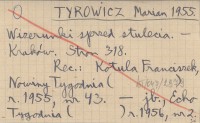 O TYROWICZ Marian 1955.
Wizerunki sprzed stulecia. —
Kraków. Stron 318.
Rec.: Kotula Franciszek,
Nowiny Tygodnia (
r. 1955, nr 43. — jb, Echo
Tygodnia ( ) r. 1956, nr 2.